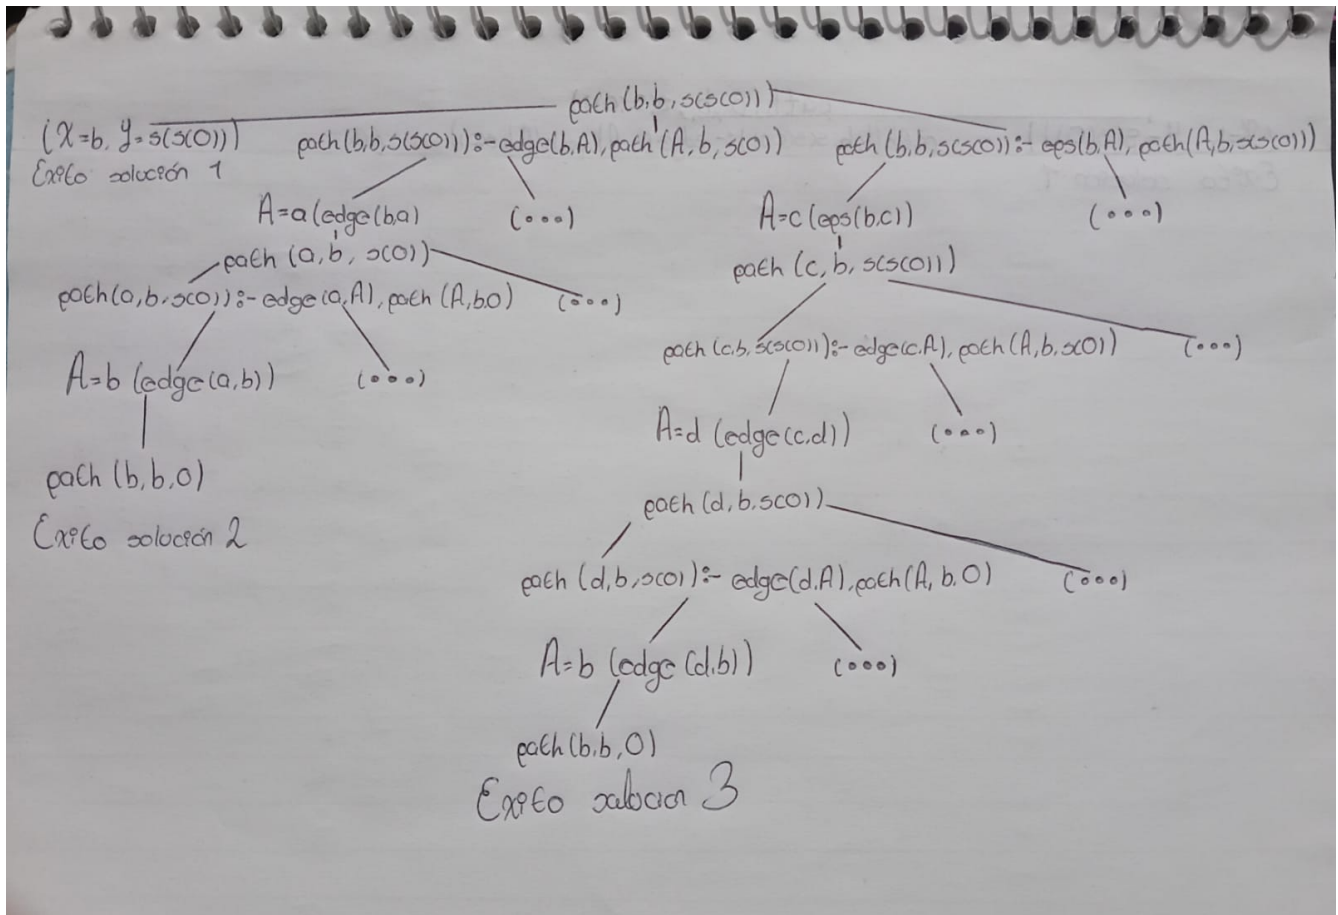 path(b,b,s(s(0)))
(X=b, Y=s(s(0))) path(b,b,s(s(0))):-edge(b,A),path(A,b,s(0)) path(b,b,s(s(0))):- eps(b,A),path(A,b,s(s(0)))
Exito solución 1
A=a(edge(b,a) (...) A=c(eps(b,c)) (...)
path (a,b,s(0))
path (c,b,s(s(0)))
path(a,b,s(0)):- edge(a,A),path(A,b,0) (...)
path(c,b,s(s(0))):- edge(c,A),path(A,b,s(0)) (...)
A=b (edge(a,b)) (...)
A=d (edge(c,d)) (...)
path (b,b,0)
path (d,b,s(0))
Exito solución 2
path (d,b,s(0)):- edge(d,A),path(A,b,0) (...)
A=b (edge(d,b)) (...)
path(b,b,0)
Exito solucion 3